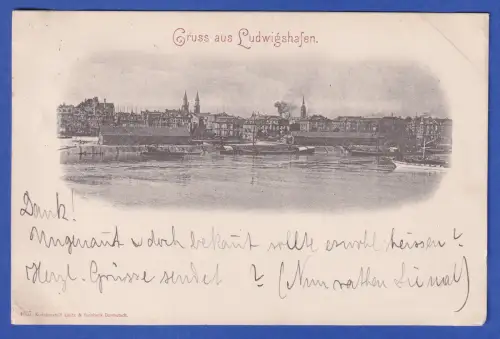 Gruss aus Ludwigshafen.
Dank!
Ungenannt u doch bekannt sollte es wohl heissen?
Herzl. Grüsse sendet ? (Nun rathen Sie mal)